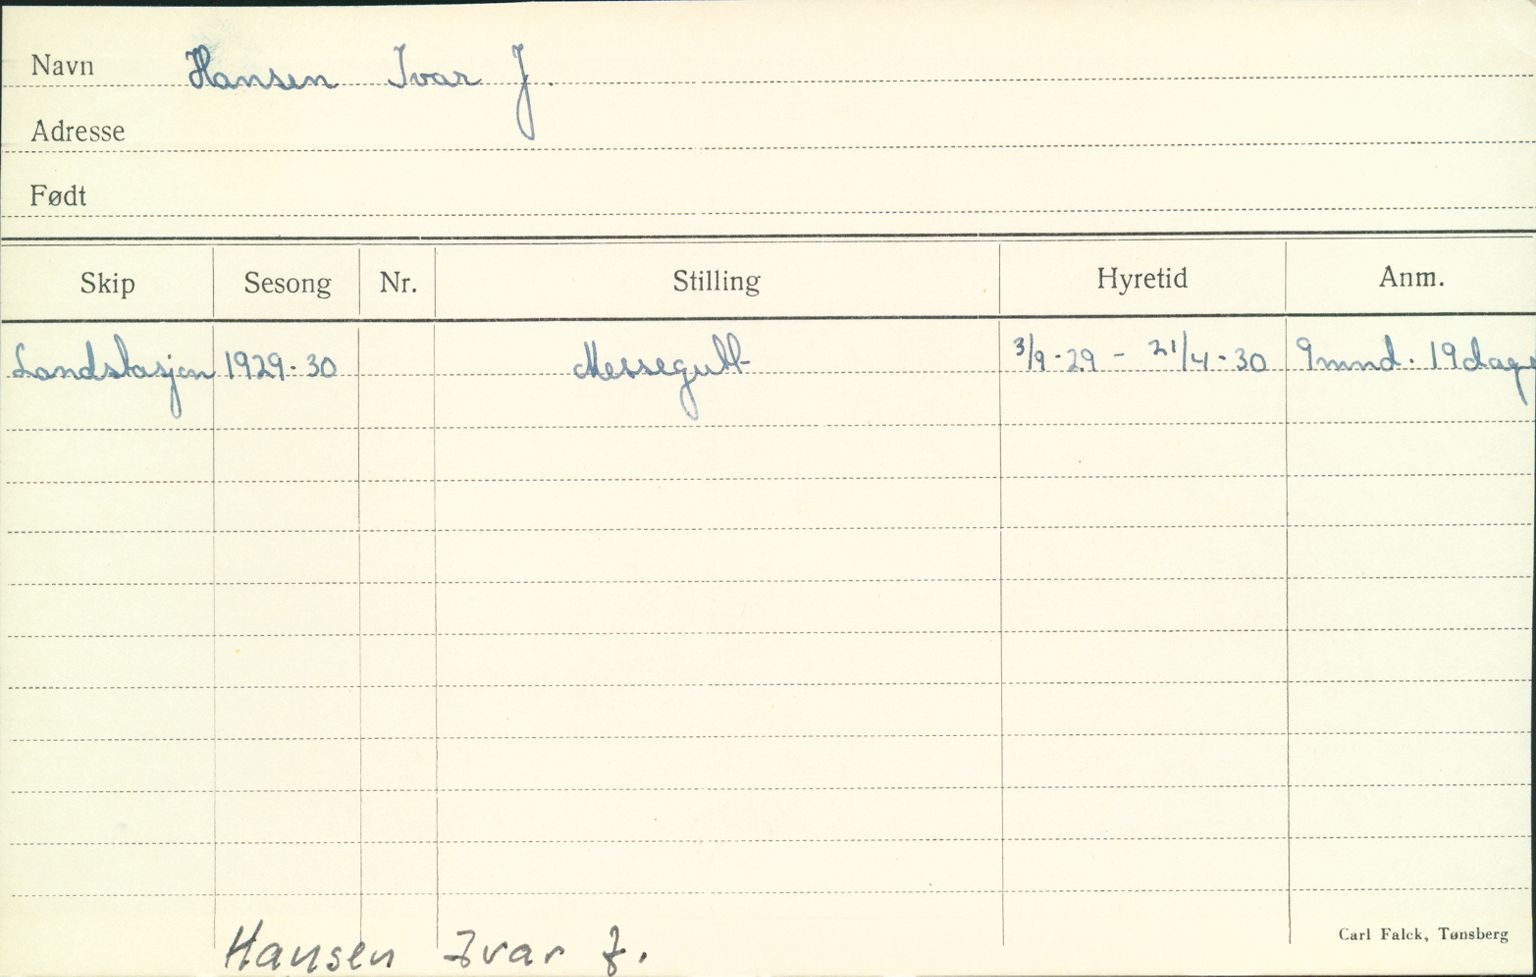 Navn Hansen Ivar J.
Adresse
Født
Skip Sesong Nr. Stilling Hyretid Anm.
Landstasjon 1929-30 Messegutt 3/9-29 - 21/4-30 9mnd. 19dage
Carl Falck, Tønsberg
Hansen Ivar J.